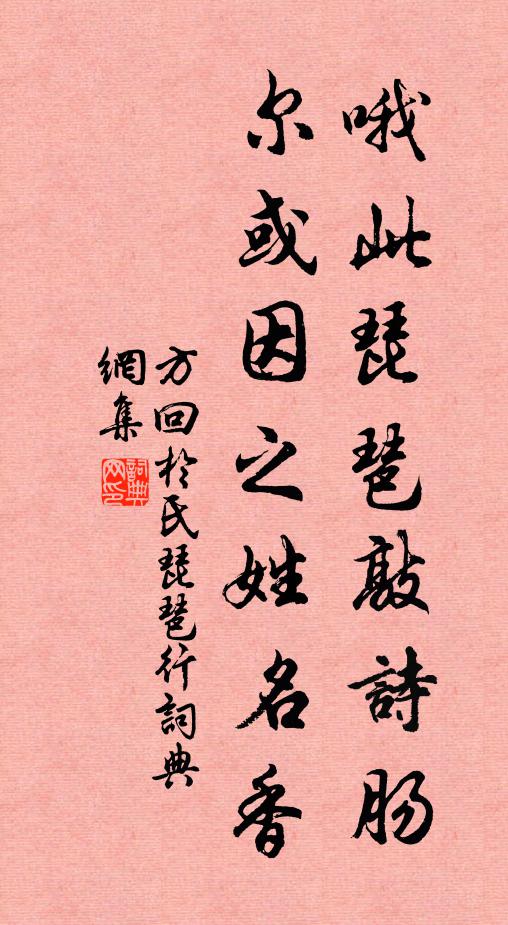 哦此琵琶敲詩肠
尔或因之姓名香
方回於氏琵琶行詞典
網集
詞典网印